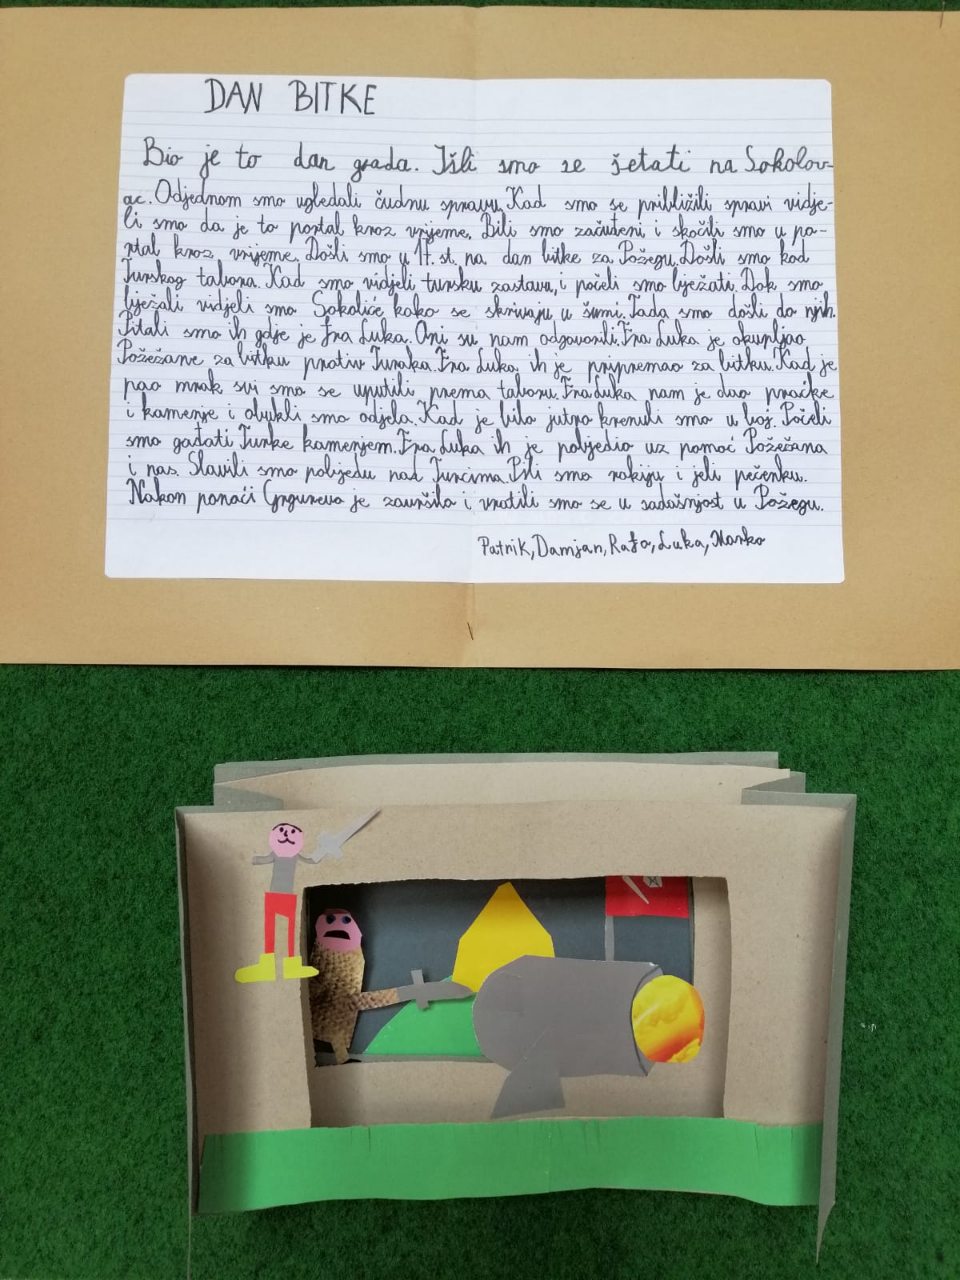 DAN BITKE
Bio je to dan grada. Išli smo se šetati na Sokolov-
ac. Odjednom smo ugledali čudnu spravu. Kad smo se približili spravi vidje-
li smo da je to portal kroz vrijeme. Bili smo začuđeni i skočili smo u po-
rtal kroz vrijeme. Došli smo u 17. st. na dan bitke za Požegu. Došli smo kod
Turskog tabora. Kad smo vidjeli tursku zastavu, i počeli smo bježati. Dok smo
bježali vidjeli smo Sokoliće kako se skrivaju u šumi. Tada smo došli do njih.
Pitali smo ih gdje je fra Luka. Oni su nam odgovorili. Fra Luka je okupljao
Požežane za bitku protiv Turaka. Fra Luka ih je pripremao za bitku. Kad je
pao mrak svi smo se uputili prema taboru. Fra Luka nam je dao praćke
i kamenje i obukli smo odjela. Kad je bilo jutro krenuli smo u boj. Počeli
smo gađati Turke kamenjem. Fra Luka ih je pobijedio uz pomoć Požežana
i nas. Slavili smo pobijedu nad Turcima. Pili smo rakiju i jeli pečenku.
Nakon ponoći Grgureva je završila i vratili smo se u sadašnjost u Požegu.
Patrik, Damjan, Rafo, Luka, Marko